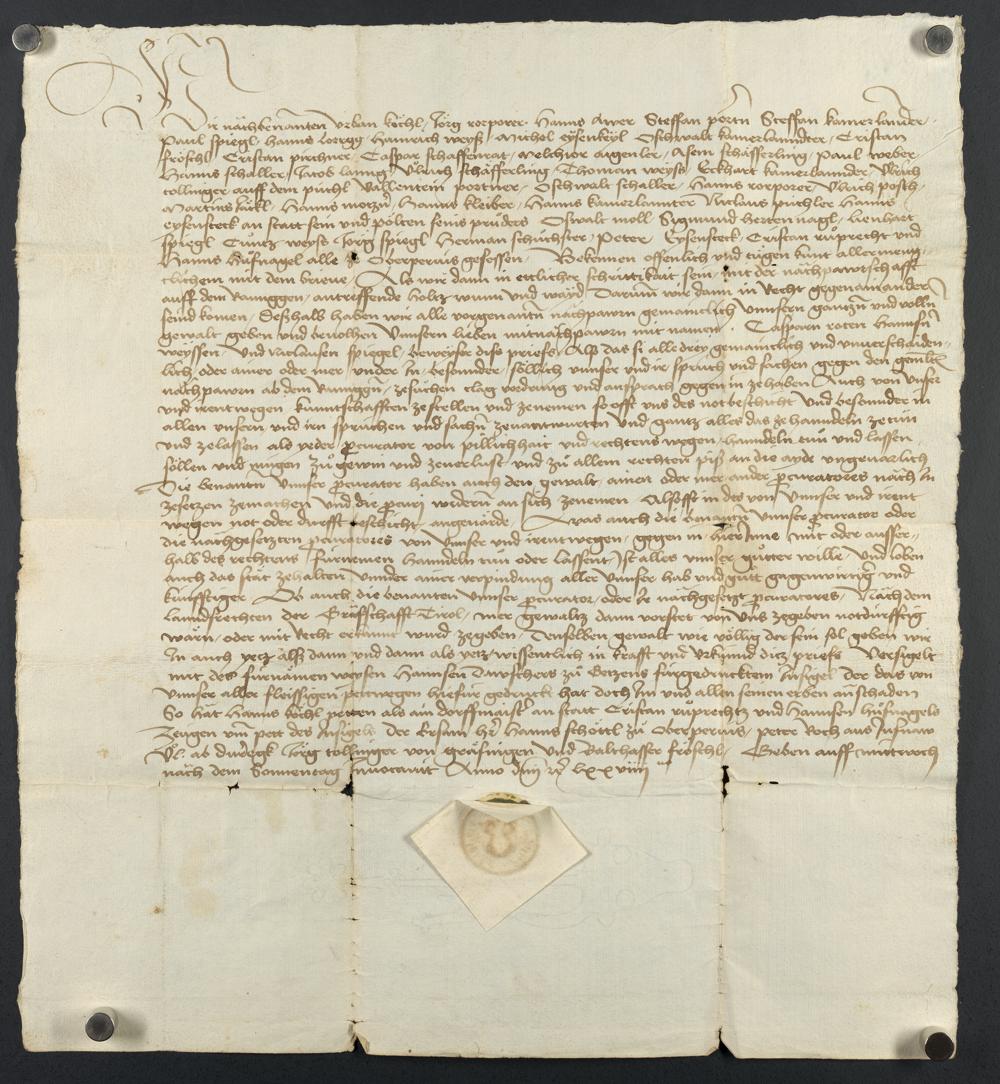 Wir nachbenanten Urban köchl, Jörg rorporer Hanns Awer Steffan portn Steffan kamerlander
Paul spiegl, Hanns Hainrich weyß, Michel eysenkeyl Oschwalt kamerlanndter, Cristan
fröschl Cristan pirchner, Caspar schaffenrat, Melchior aigenler, Asem schäfferling, Paul weber
Hanns schaller, Jacob lanng, Ulrich schäfferling, Thoman weyß, Eckhart kamerlannder Ulrich
tollinger auff dem püchl Vallentein portner, Oschwalt schaller, Hanns rorporer Ulrich posch,
Martein Hanns Hanns kleiber, Hanns kamerlannter Niclaus püchler Hanns
eysensteck an statt sein und pölten seins prüders Oswalt moll Sygmund herttennagl, Lienhart
spiegl Cüntz weyß Jörg spiegl Herman schuchster, Peter Eysensteck, Cristan ruprecht und
Hanns hüfnagel alle zu Oberperuis gesessen, Bekennen offenlich und tügen kunt allermeng-
klichem mit dem brieue, Als wir dann in ettlicher sein, mit der nachpawrschafft
auff dem Rannggen, antreffende holtz wunn und wayd, Darumb wir dann in Recht gegen anander
seind komen, Deßhalb haben wir alle vorgenantn nachpawrn gemainclich unnsern gantzn und volln
gewalt geben und beuolhen Unnsern lieben mitnachpawrn mit namen, Casparn roten Hannsn
weyssen, Und Niclausen spiegel, beweyser diss priefs, Alß das si alle drey gemaincklich und unuerschaiden-
lich, oder ainer oder mer under in besonder, söllich unnser und ir spruch und sachen gegen den gemelten
nachpawrn ab dem Rannggen, zesuchen clag vordrung und ansprach gegen in zehaben Auch von unser
und irentwegen kunntschafften zestellen und zenemen so offt uns des not beschicht und besonnder in
allen unsern und irn spruchen und sachn zuantwurten und gantz alles das ze hanndeln zetun
und zelassen, als yeder procurator von pillichhait und rechtens wegen, hanndeln tun und lassen,
söllen und mugen zu gewin und zeuerlust, und zu allem rechten piß an die ayde ungeuarlich
Die benantn unnser procurator haben auch den gewalt, ainen oder mer ander procuratores nach in
zesetzen zemachen und die procury widerum an sich zenemen Alsofft in des von unnser und irent
wegen not oder durfft beschicht, angeuärde, Was auch die benantn unnser procurator oder
die nachgesetzten procuratores von unnser und irentwegen, gegen in hierinne, mit oder ausser-
halb des rechtens, fürnemen hanndeln tun oder lassent, Ist alles unnser gutter wille, und loben
auch das stät zehalten, unnder ainer verpindung aller unnser hab und gutt gagenwürtigr und
künfftiger, Ob auch die benanten unnser procurator, oder ir nachgesetzt procuratores, Nach dem
Lanndsrechten der Grafschafft Tirol, mer gewaltz dann vorstet von uns zegeben notdürfftig
wärn, oder mit Recht erkannt wurd zegeben, Denselben gewalt wie völlig der sein sol geben wir
In auch yetz alß dann und dann als yetz wissentlich in krafft und Urkunnd ditz priefs Versigelt
mit des fürnämen weysen Hannsen zu Götzens fürgedrucktem Insigel Der das von
unnser aller fleissigen pettwegen hiefür gedruckt hat doch im und allen seinen erben an schaden
So hat Hanns köchl petten als ain dorffmaistr an statt Cristan ruprechtz und Hannsen hüfnagels
Zeugen um pett des Insigels, Der Ersam her Hanns schöttl zu Oberperuis, peter Roch aus
Ul. ab Jörg tollinger von und Balthasser fröschl, Geben auff mittwoch
nach dem Sonnentag Inuocavit Anno dm lxxviiij